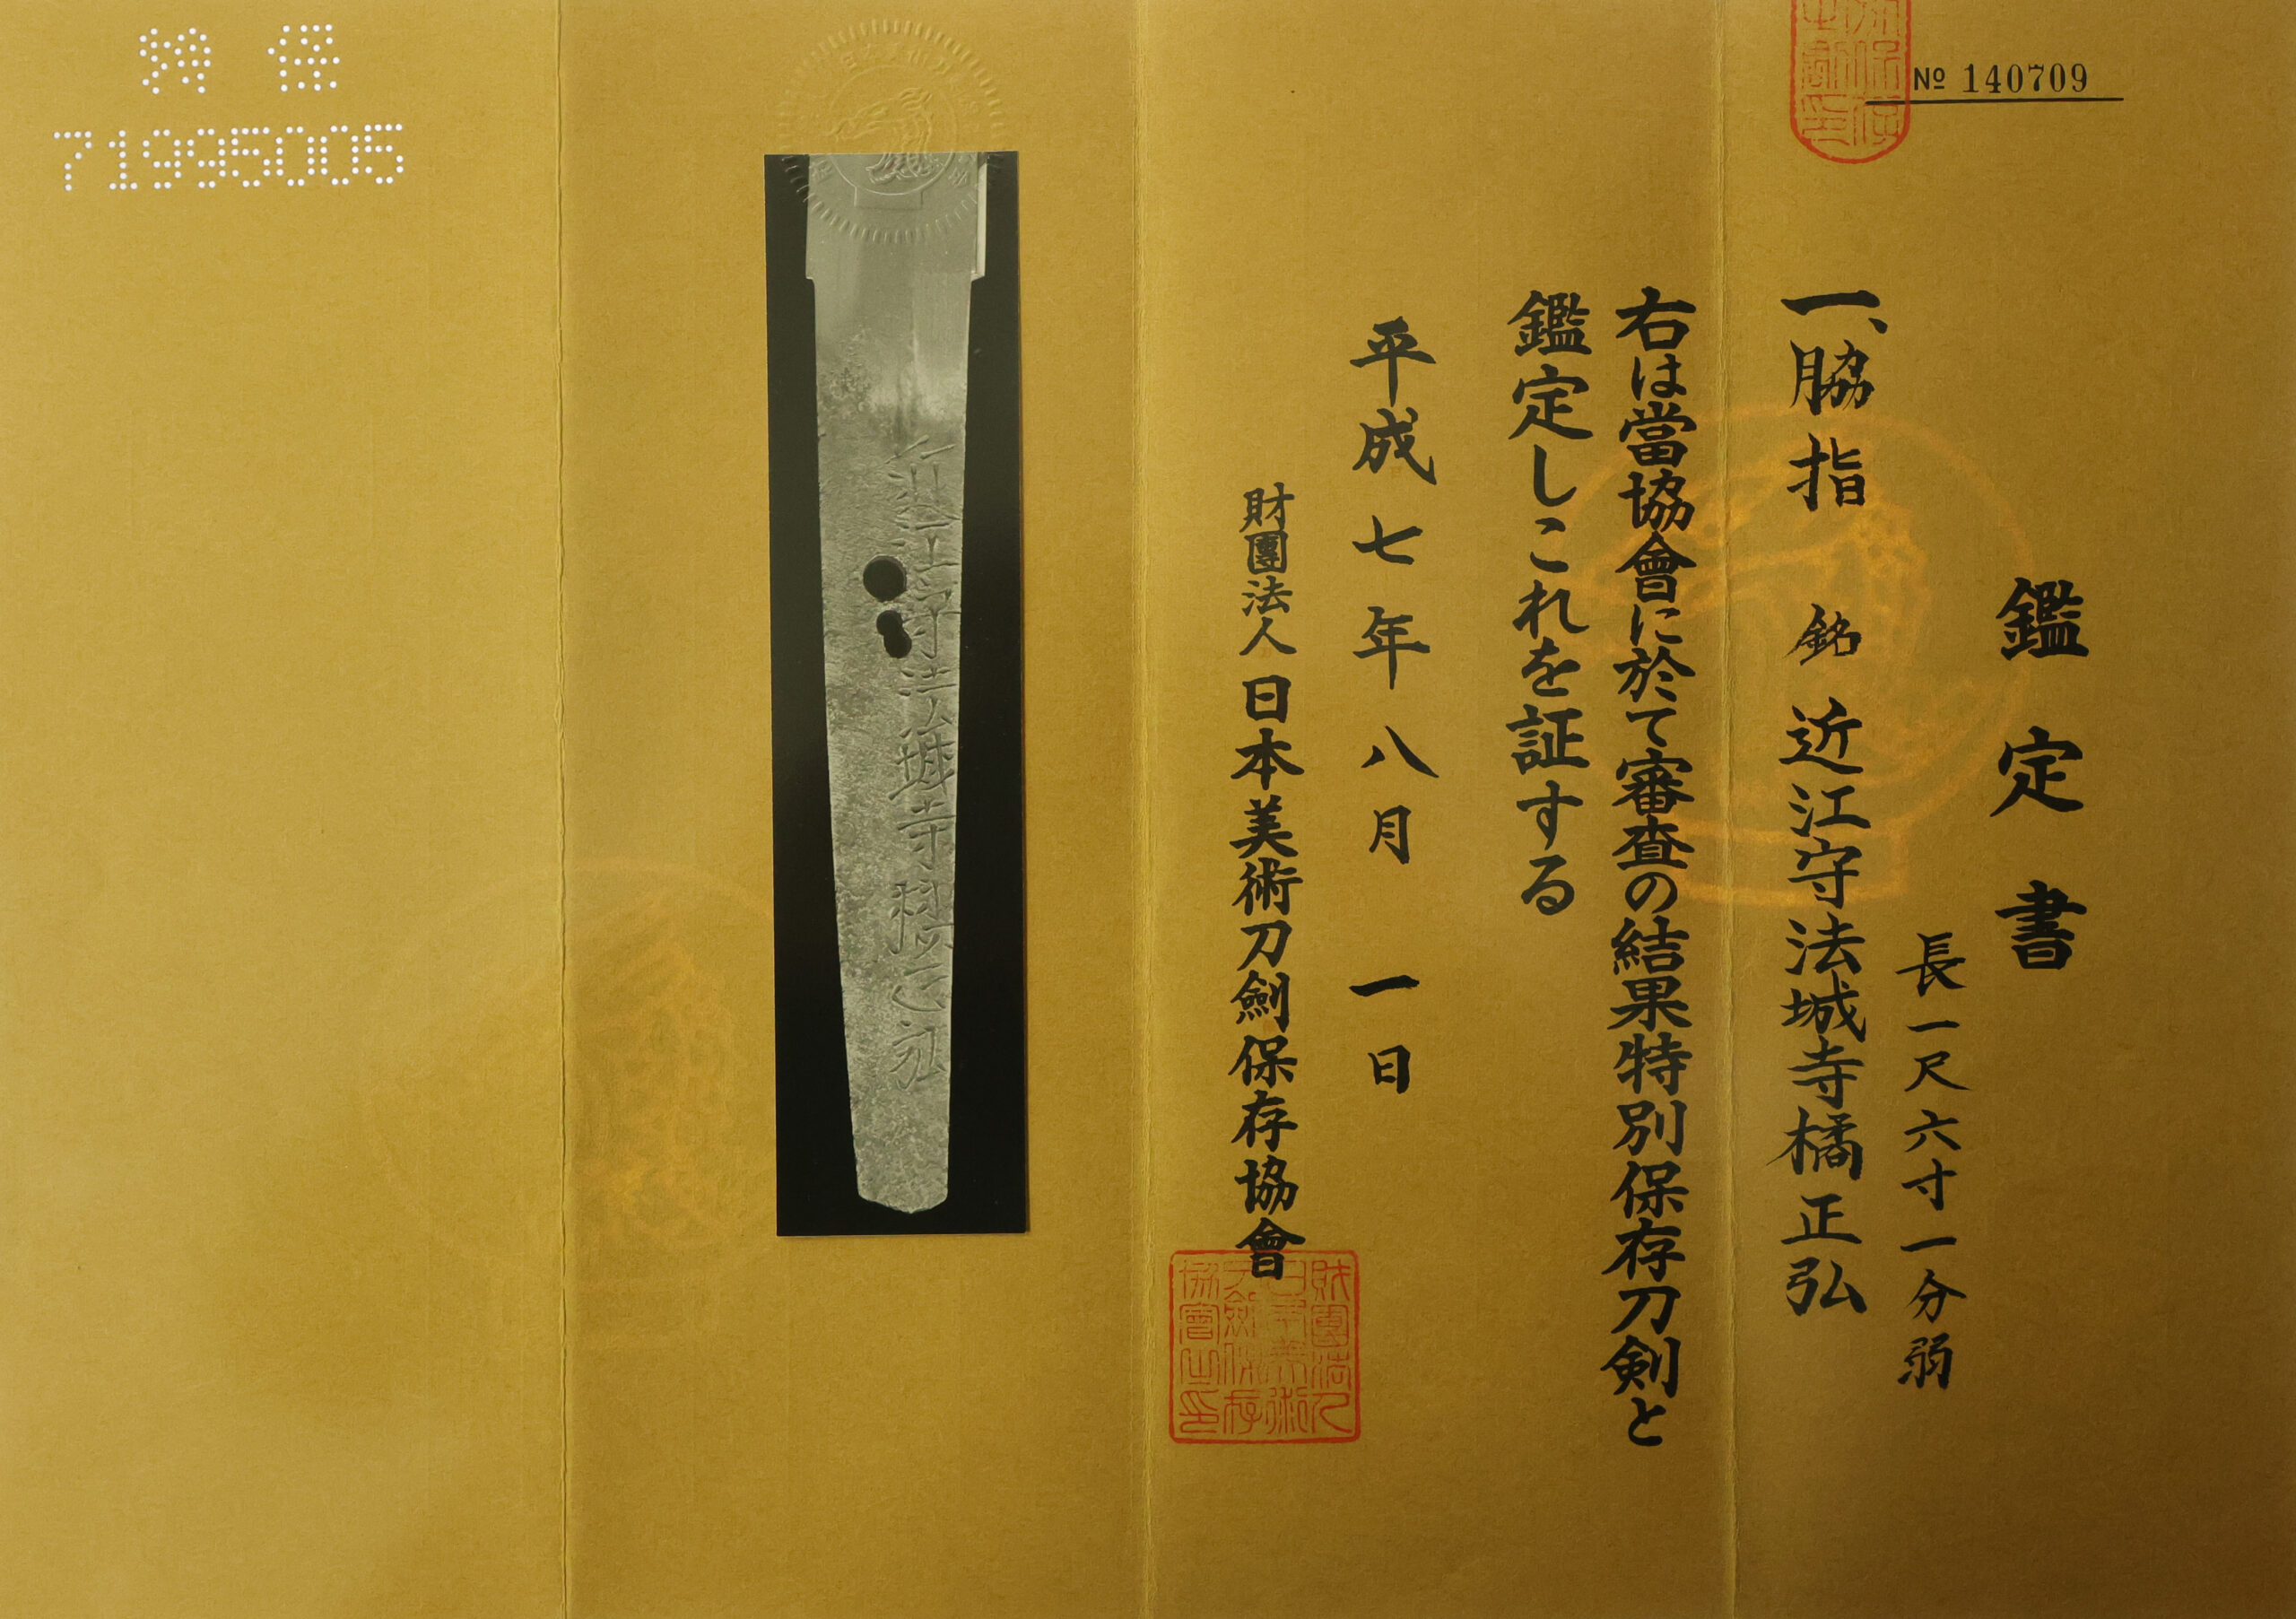 № 140709
鑑定書
長一尺六寸一分弱
一、脇指 銘 近江守法城寺橘正弘
右は當協會に於て審査の結果特別保存刀剣と
鑑定しこれを証する
平成七年八月 一日
財團法人 日本美術刀劍保存協會
財團法人
日本美術
刀劍保存
協會之印
近江守法城寺橘正弘
特 保
71995005